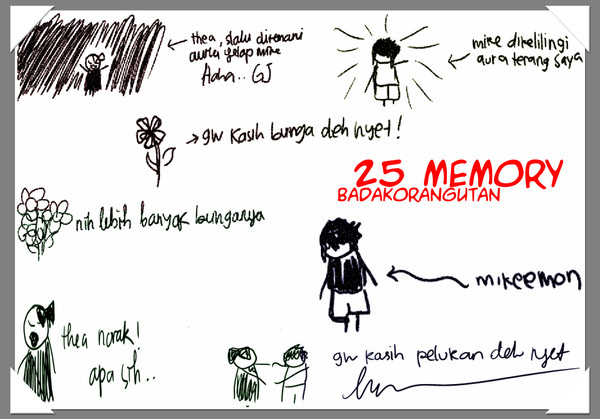 thea, slalu ditemani
aura gelap mike
Haha.. GJ
mike dikelilingi
aura terang saya
gw kasih bunga deh nyet!
25 MEMORY
BADAKORANGUTAN
nih lebih banyak bunganya
mikeemon
thea norak!
apa sih..
gw kasih pelukan deh nyet